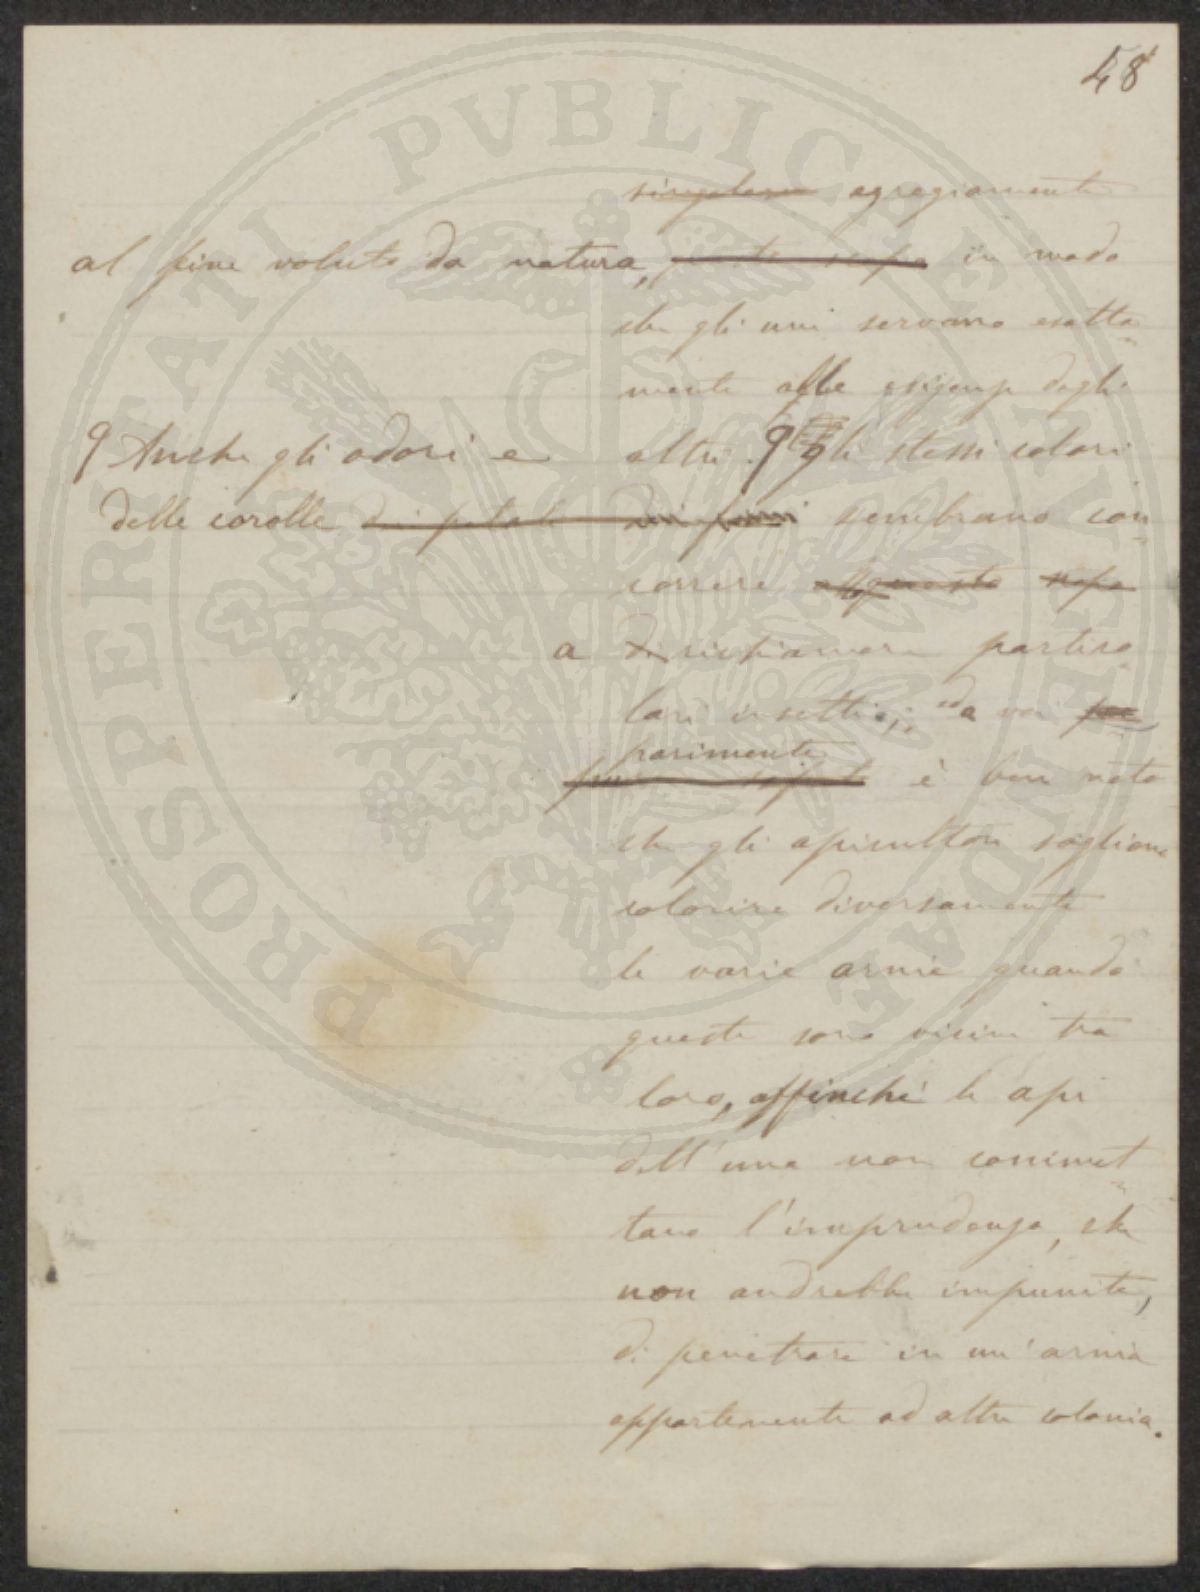 48
singolare egregiamente
al fine voluto da natura, in modo
che gli uni servano esatta
mente alle esigenze degli
altri. gli stessi colori
Anche gli odori e
delle corolle dei petali sembrano con
correre a questo scopo
a di richiamare partico
lari insetti; ed a voi
parimente
è ben noto
che gli apicultori sogliono
colorire diversamente
le varie arnie quando
queste sono vicine tra
loro, affinché le api
dell'una non commet
tano l'imprudenza, che
non andrebbe impunita,
di penetrare in un'arnia
appartenente ad altra colonia.
PROSPERITATI PVBLICAE AVGENDAE